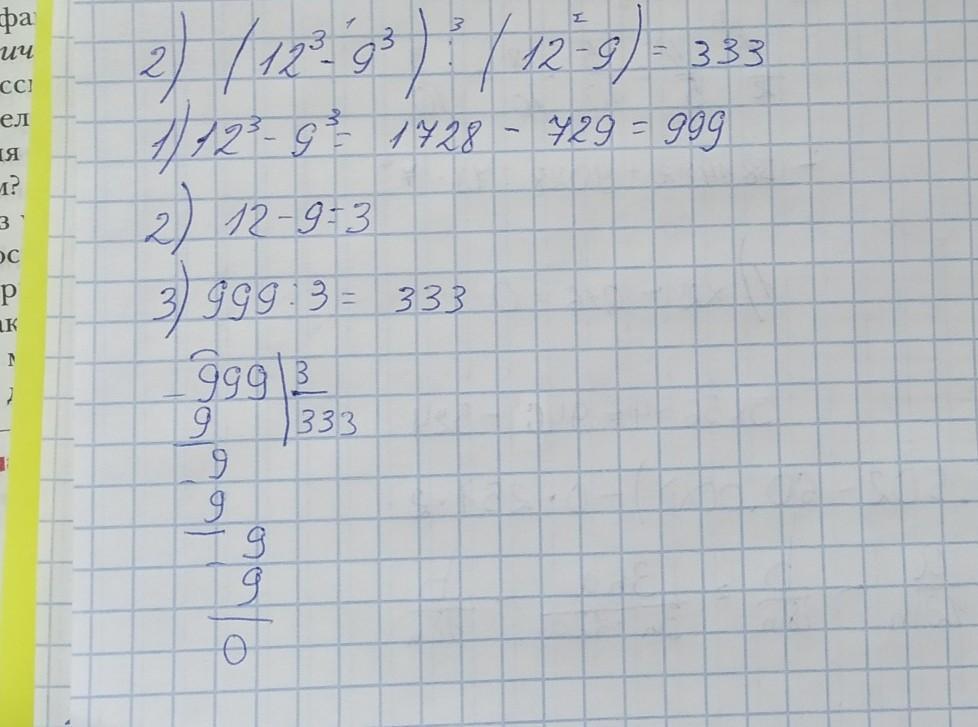 фа
ич
ел
ия
м?
з
ос
р
ак
м
2) (12³ - 9³) : (12 - 9) = 333
1 3 2
1) 12³ - 9³ = 1728 - 729 = 999
2) 12 - 9 = 3
3) 999 : 3 = 333
- 999 | 3
9 | 333
- 9
9
- 9
9
0